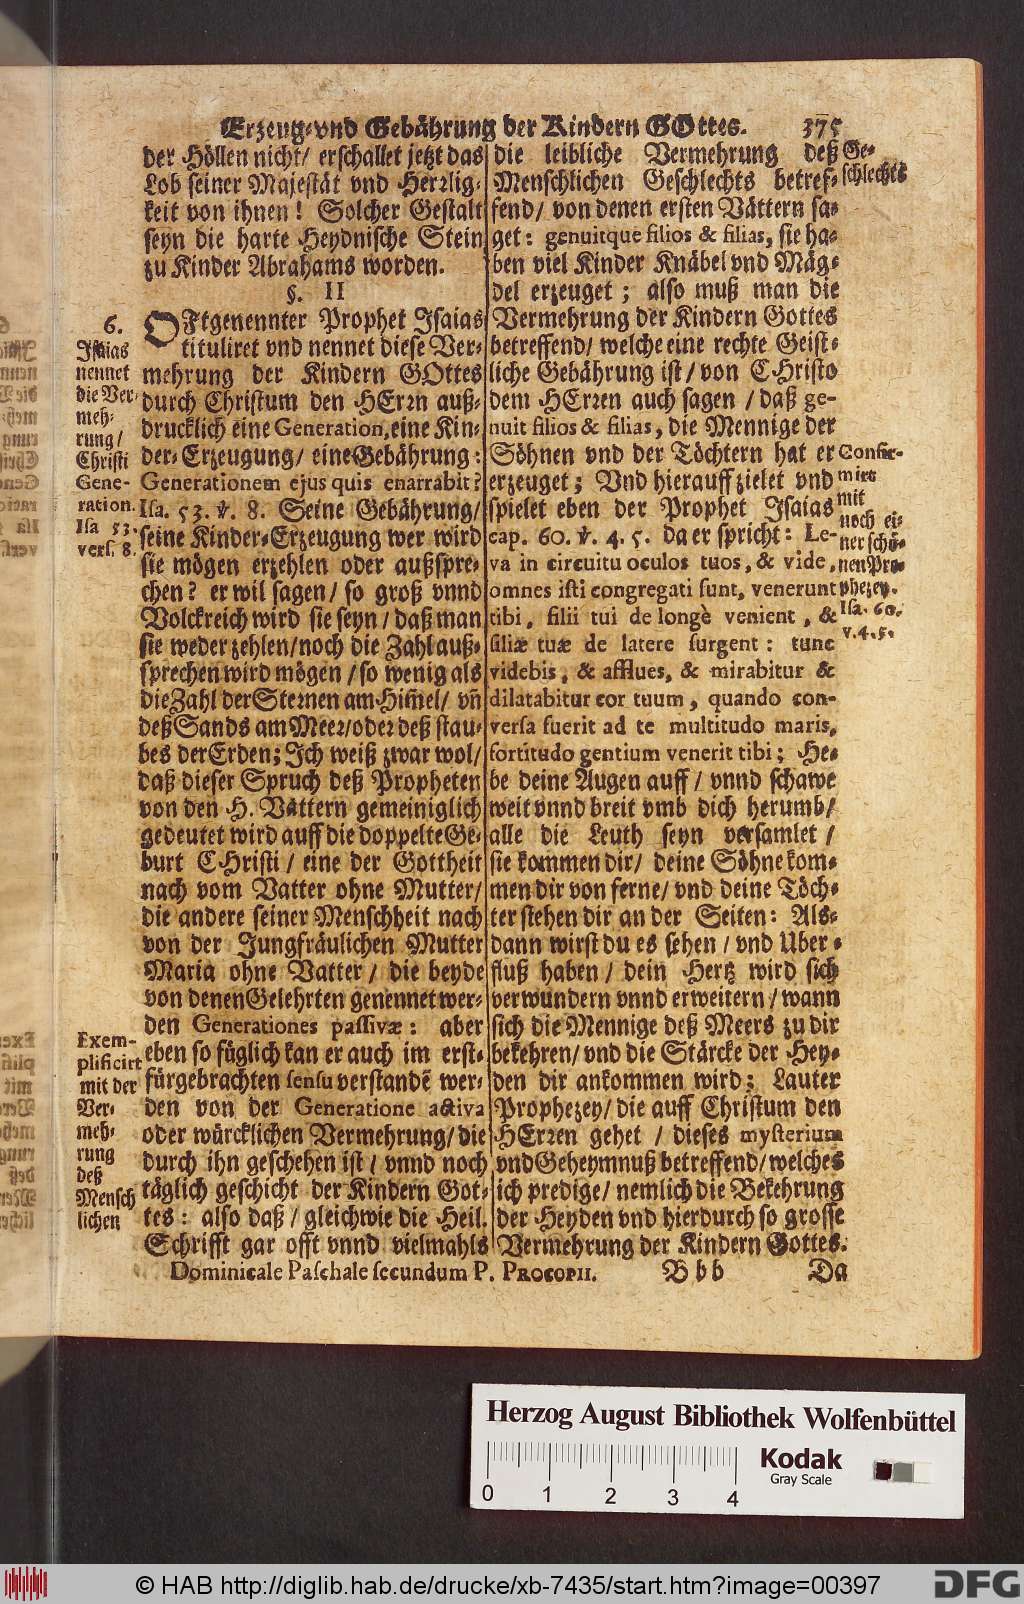 Erzeug-vnd Gebährung der Kindern GOttes. 375
der Höllen nicht/ erschallet jetzt das
Lob seiner Majestät vnd Herrlig-
keit von ihnen! Solcher Gestalt
seyn die harte Heydnische Stein
zu Kinder Abrahams worden.
§. II
6.
Isaias
nennet
die Ver-
meh-
rung/
Christi
Gene-
ration.
Isa 53.
vers. 8.
OFtgenennter Prophet Isaias
tituliret vnd nennet diese Ver-
mehrung der Kindern GOttes
durch Christum den HErrn auß-
drucklich eine Generation, eine Kin-
der-Erzeugung/ eine Gebährung:
Generationem ejus quis enarrabit?
Isa. 53. ℣. 8. Seine Gebährung/
seine Kinder-Erzeugung wer wird
sie mögen erzehlen oder außspre-
chen? er wil sagen/ so groß vnnd
Volckreich wird sie seyn/ daß man
sie weder zehlen/ noch die Zahl auß-
sprechen wird mögen/ so wenig als
die Zahl der Sternen am Him̄el/ vn̄
deß Sands am Meer/ oder deß stau-
bes der Erden; Ich weiß zwar wol/
daß dieser Spruch deß Propheten
von den H. Vättern gemeiniglich
gedeutet wird auff die doppelte Ge-
burt CHristi/ eine der Gottheit
nach vom Vatter ohne Mutter/
die andere seiner Menschheit nach
von der Jungfräulichen Mutter
Maria ohne Vatter/ die beyde
von denen Gelehrten genennet wer-
den Generationes passivæ: aber
eben so füglich kan er auch im erst-
fürgebrachten sensu verstandē wer-
den von der Generatione activa
oder würcklichen Vermehrung/ die
durch ihn geschehen ist/ vnnd noch
täglich geschicht der Kindern Got-
tes: also daß/ gleichwie die Heil.
Schrifft gar offt vnnd vielmahls
Exem-
plificirt
mit der
Ver-
meh-
rung
deß
Mensch
lichen
die leibliche Vermehrung deß
Menschlichen Geschlechts betref-
fend/ von denen ersten Vättern sa-
get: genuitque filios & filias, sie ha-
ben viel Kinder Knäbel vnd Mäg-
del erzeuget; also muß man die
Vermehrung der Kindern Gottes
betreffend/ welche eine rechte Geist-
liche Gebährung ist/ von CHristo
dem HErren auch sagen/ daß ge-
nuit filios & filias, die Mennige der
Söhnen vnd der Töchtern hat er
erzeuget; Vnd hierauff zielet vnd
spielet eben der Prophet Isaias
cap. 60. ℣. 4. 5. da er spricht: Le-
va in circuitu oculos tuos, & vide,
omnes isti congregati sunt, venerunt
tibi, filii tui de longè venient, &
filiæ tuæ de latere surgent: tunc
videbis, & afflues, & mirabitur &
dilatabitur cor tuum, quando con-
versa fuerit ad te multitudo maris,
fortitudo gentium venerit tibi; He-
be deine Augen auff/ vnnd schawe
weit vnnd breit vmb dich herumb/
alle die Leuth seyn versamlet/
sie kommen dir/ deine Söhne kom-
men dir von ferne/ vnd deine Töch-
ter stehen dir an der Seiten: Als-
dann wirst du es sehen/ vnd Uber-
fluß haben/ dein Hertz wird sich
verwundern vnnd erweitern/ wann
sich die Mennige deß Meers zu dir
bekehren/ vnd die Stärcke der Hey-
den dir ankommen wird; Lauter
Prophezey/ die auff Christum den
HErren gehet/ dieses mysterium
vnd Geheymnuß betreffend/ welches
ich predige/ nemlich die Bekehrung
der Heyden vnd hierdurch so grosse
Vermehrung der Kindern Gottes.
Ge-
schlechts
Confir-
mirt
mit
noch ei-
ner schö-
nen Pro-
phezey.
Isa. 60.
v. 4. 5.
Dominicale Paschale secundum P. PROCOPII. Bbb Da
Herzog August Bibliothek Wolfenbüttel
Kodak
Gray Scale
0 1 2 3 4
© HAB http://diglib.hab.de/drucke/xb-7435/start.htm?image=00397
DFG